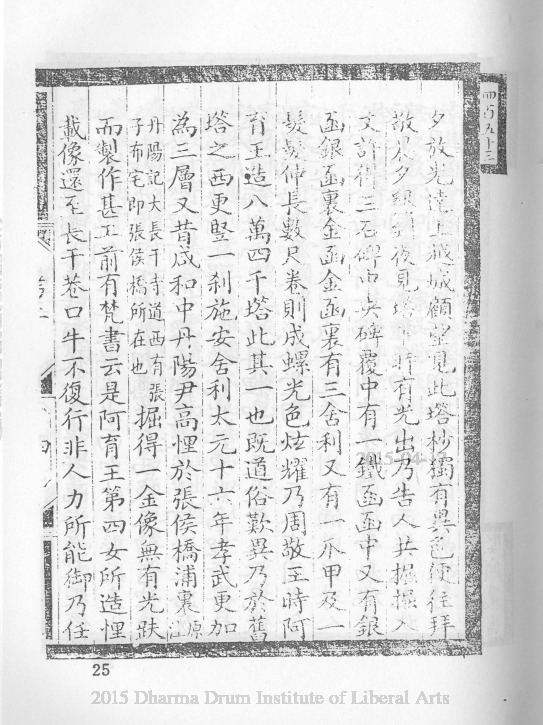 四百五十三
夕放光達上越城顧望見此塔杪獨有異色便往拜
敬晨夕 到夜見塔下時有光出乃告人共掘掘入
丈許得三石碑中央碑覆中有一鐵函函中又有銀
函銀函裏金函金函裏有三舍利又有一爪甲及一
髮髮伸長數尺卷則成螺光色炫耀乃周敬王時阿
育王造八萬四千塔此其一也既道俗歎異乃於舊
塔之西更竪一剎施安舍利太元十六年孝武更加
為三層又昔咸和中丹陽尹高悝於張侯橋浦裏
丹陽記大長干寺道西有張
子布宅即張侯橋所在也
掘得一金像無有光趺
而製作甚工前有梵書云是阿育王第四女所造悝
載像還至長干巷口牛不復行非人力所能御乃任
25
2015 Dharma Drum Institute of Liberal Arts